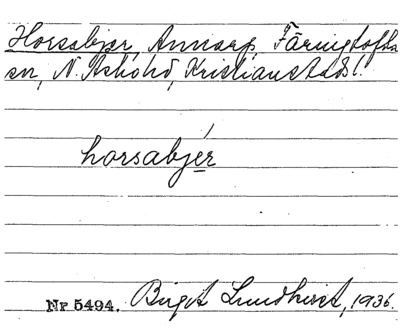 Horsabjer, Annarp, Färingtofta
sn, N. Åsbohd, Kristianstads l.
horsabjér
Nr 5494. Birgit Lundhvist, 1936.